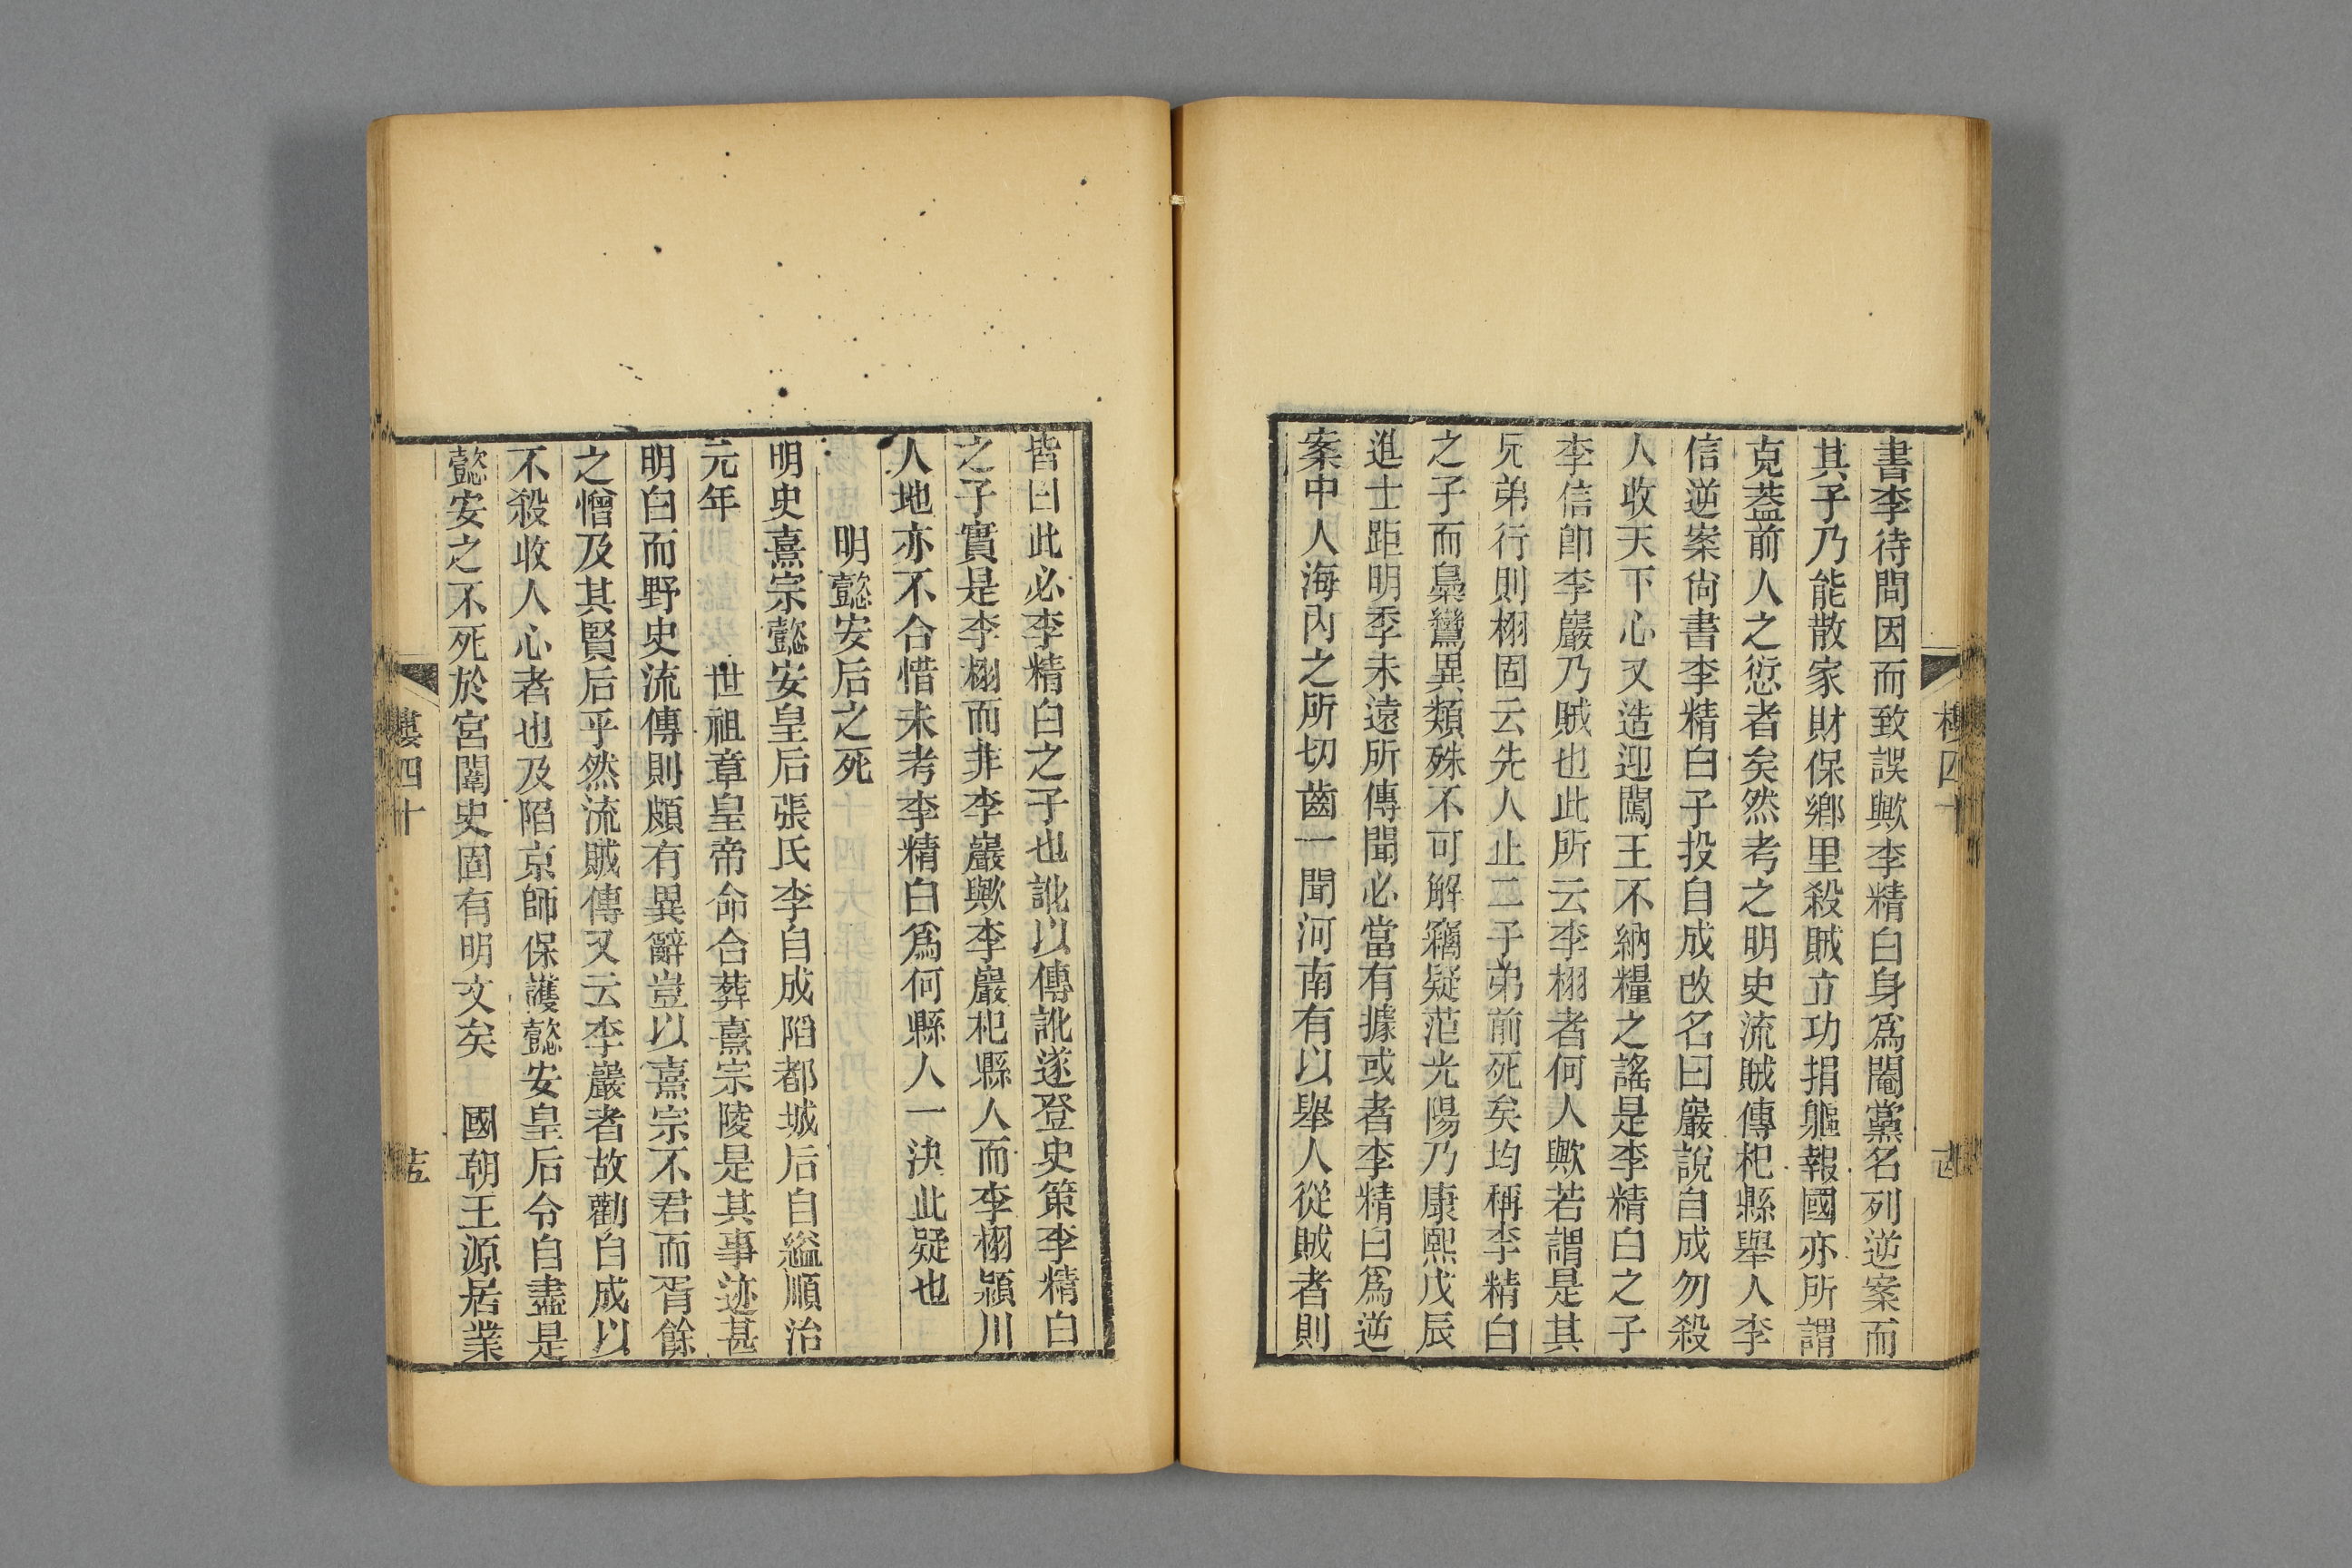 書李待問因而致誤歟李精白身爲閹黨名列逆案而
其子乃能散家財保鄉里殺賊立功捐軀報國亦所謂
克蓋前人之愆者矣然考之明史流賊傳杞縣舉人李
信逆案尙書李精白子投自成改名曰巖說自成勿殺
人收天下心又造迎闖王不納糧之謠是李精白之子
李信卽李巖乃賊也此所云李栩者何人歟若謂是其
兄弟行則栩固云先人止二子弟前死矣均稱李精白
之子而梟鸞異類殊不可解竊疑范光陽乃康熙戊辰
進士距明季未遠所傳聞必當有據或者李精白爲逆
案中人海內之所切齒一聞河南有以舉人從賊者則
樓四十
古
皆曰此必李精白之子也訛以傳訛遂登史策李精白
之子實是李栩而非李巖歟李巖杞縣人而李栩潁川
人地亦不合惜未考李精白爲何縣人一決此疑也
明懿安后之死
明史熹宗懿安皇后張氏李自成陷都城后自縊順治
元年　世祖章皇帝命合葬熹宗陵是其事迹甚
明白而野史流傳則頗有異辭豈以熹宗不君而胥餘
之憎及其賢后乎然流賊傳又云李巖者故勸自成以
不殺收人心者也及陷京師保護懿安皇后令自盡是
懿安之不死於宮闈史固有明文矣　國朝王源居業
樓四十